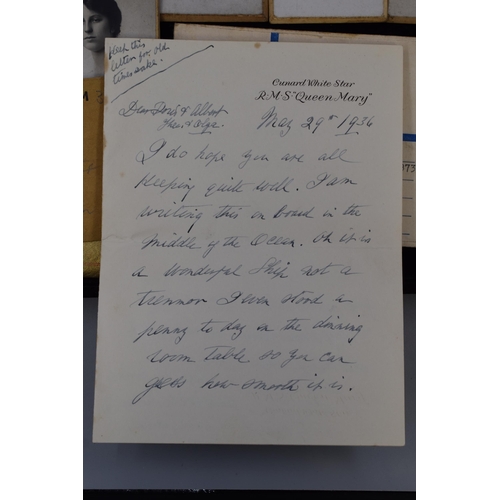 Keep this
letter for old
times sake.
Cunard White Star
R.M.S "Queen Mary"
May 29th 1936
Dear Doris & Albert
Theo. & Olga
I do hope you are all
keeping quite well. I am
writing this on board in the
middle of the Ocean. Oh it is
a wonderful Ship not a
tremmor I even stood a
penny to day on the dinning
room table so you can
gess how smooth it is.